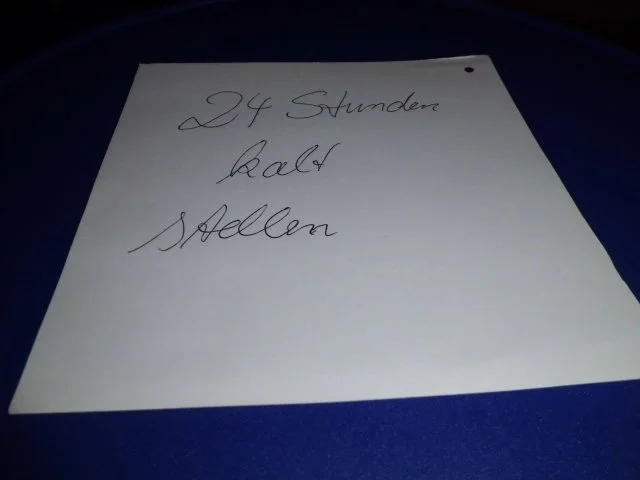 24 Stunden
kalt
stellen